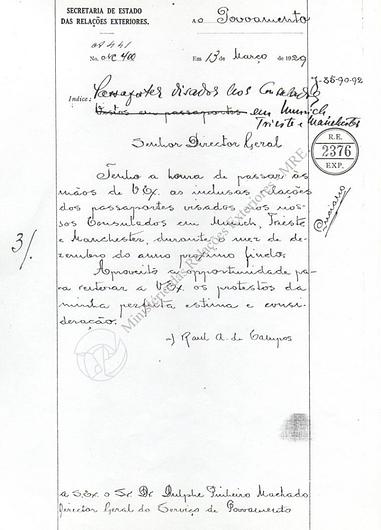 SECRETARIA DE ESTADO
DAS RELAÇÕES EXTERIORES.
Ao Povoamento
No. 400
Em 13 de Março de 1929
7-86-90-92
Indice: Passaportes visados nos Consulados
Vistos em passaportes em Munich
Trieste e Manchester
Senhor Director Geral
R.E.
2376
EXP.
Tenho a honra de passar às
mãos de V. Ex. as inclusas relações
dos passaportes visados nos nos-
sos Consulados em Munich, Trieste
e Manchester, durante o mez de de-
zembro do anno proximo findo.
3/.
Aproveito a opportunidade pa-
ra reiterar a V. Ex. os protestos da
minha perfeita estima e consi-
deração.
a) Raul A. de Campos
Ministério das Relações Exteriores MRE
A S. Ex. o Sr. Dr. Dulphe Pinheiro Machado
Director Geral do Serviço de Povoamento